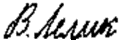 В. Лелик